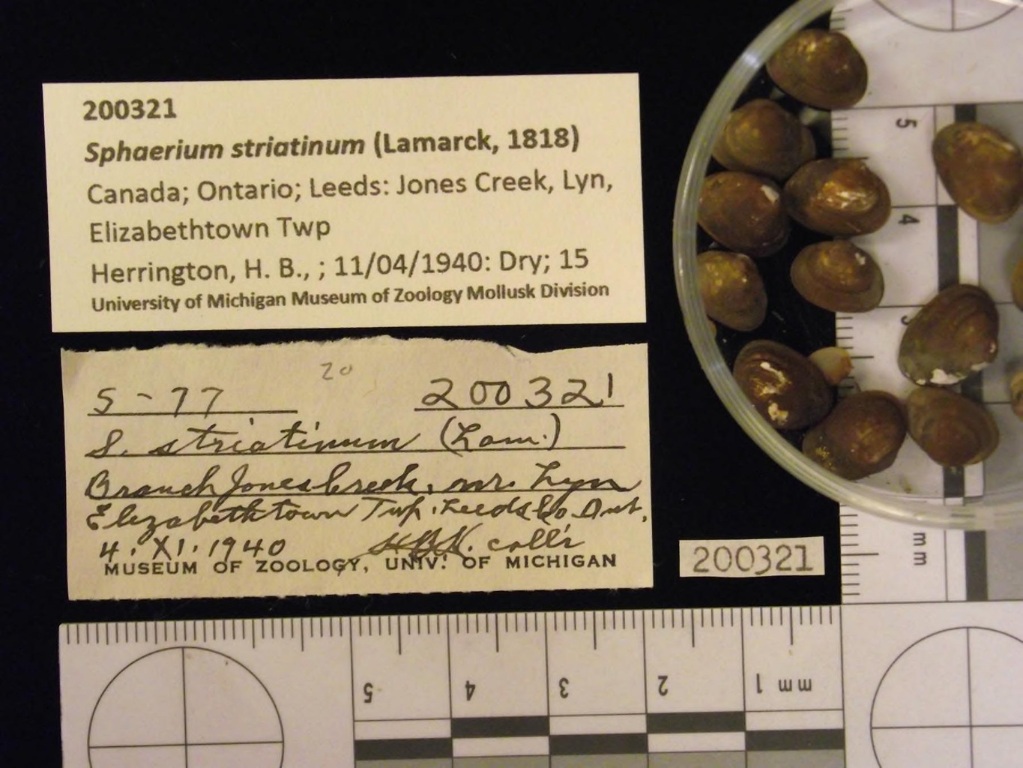 200321
Sphaerium striatinum (Lamarck, 1818)
Canada; Ontario; Leeds: Jones Creek, Lyn,
Elizabethtown Twp
Herrington, H. B., ; 11/04/1940: Dry; 15
University of Michigan Museum of Zoology Mollusk Division
20
S-77 200321
S. striatinum (Lam.)
Branch Jones Creek, nr. Lyn
Elizabethtown Twp. Leeds Co. Ont.
4. XI. 1940 H.B.H. coll'r
MUSEUM OF ZOOLOGY, UNIV. OF MICHIGAN
200321
5
4
3
mm
5 4 3 2 1 mm